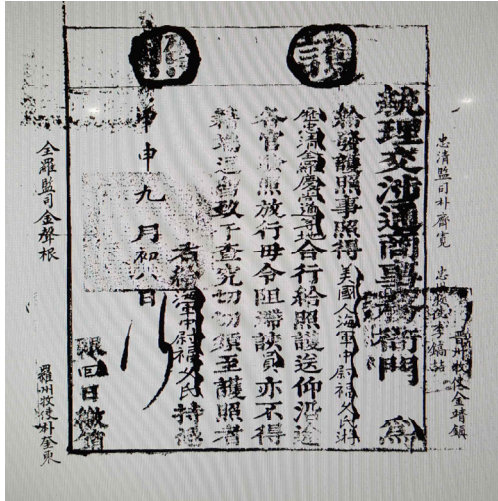 護照
忠清監司朴齊寬
晋州牧使金靖鎮
統理交涉通商事務衙門 爲
給發護照事照得美國人海軍中尉福久氏將
清全羅慶尚 合行給照護送仰沿途
各官驗照放行毋令阻滯該員亦不得
藉端逗遛致干查究切切須至護照者
右給海軍中尉福久氏持憑
甲申九月初 日
限回日繳銷
全羅監司金聲根
羅州牧使朴奎東